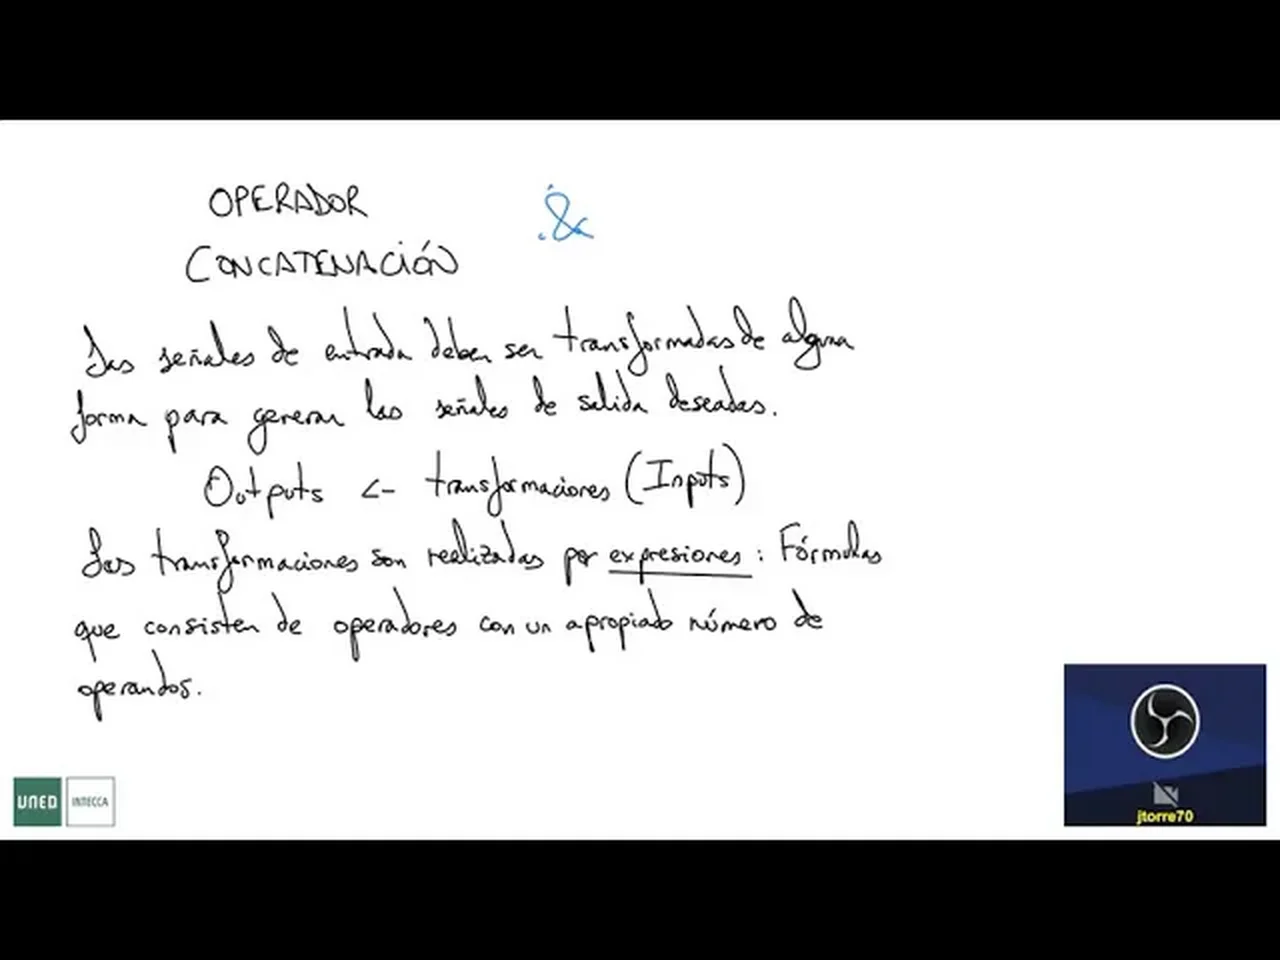 OPERADOR &
CONCATENACIÓN
Las señales de entrada deben ser transformadas de alguna
forma para generar las señales de salida deseadas.
Outputs <- transformaciones (Inputs)
Las transformaciones son realizadas por expresiones: Fórmulas
que consisten de operadores con un apropiado número de
operandos.
UNED INTECCA
jtorre70